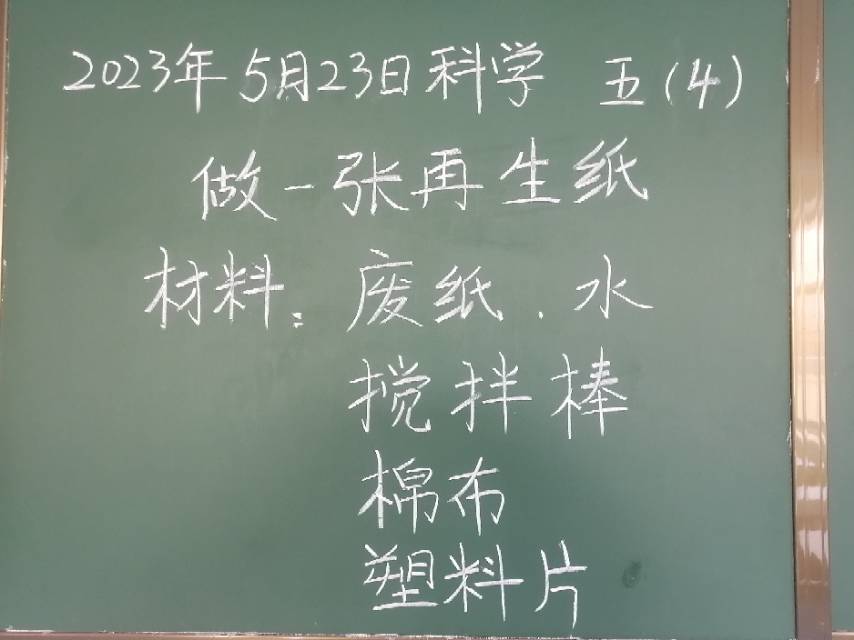 2023年5月23日科学 五(4)
做一张再生纸
材料:废纸、水
搅拌棒
棉布
塑料片